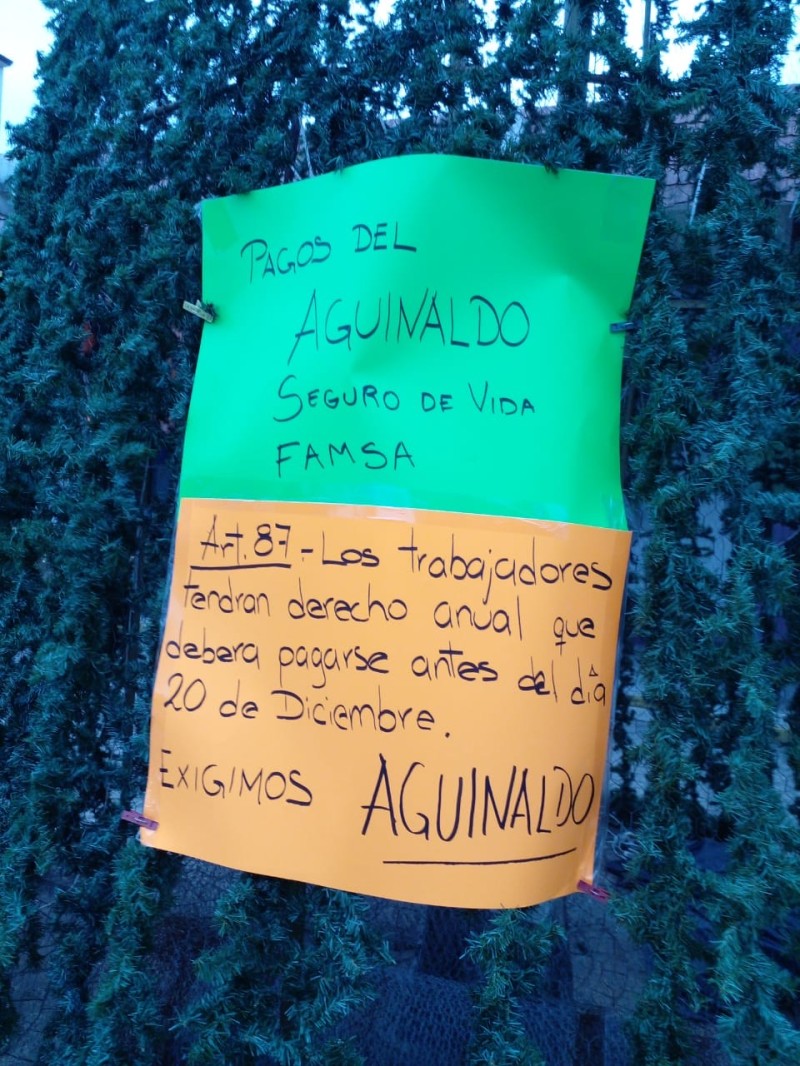 PAGOS DEL
AGUINALDO
SEGURO DE VIDA
FAMSA
Art. 87.- Los trabajadores
tendran derecho anual que
debera pagarse antes del día
20 de Diciembre.
EXIGIMOS AGUINALDO